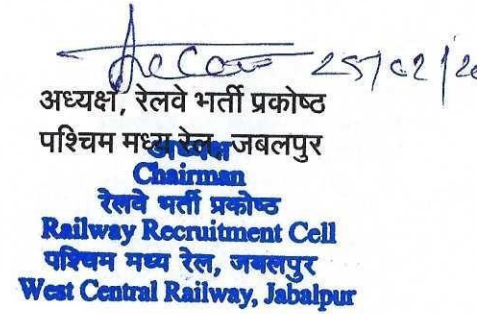 25/02/20
अध्यक्ष, रेलवे भर्ती प्रकोष्ठ
पश्चिम मध्य रेल, जबलपुर
अध्यक्ष
Chairman
रेलवे भर्ती प्रकोष्ठ
Railway Recruitment Cell
पश्चिम मध्य रेल, जबलपुर
West Central Railway, Jabalpur